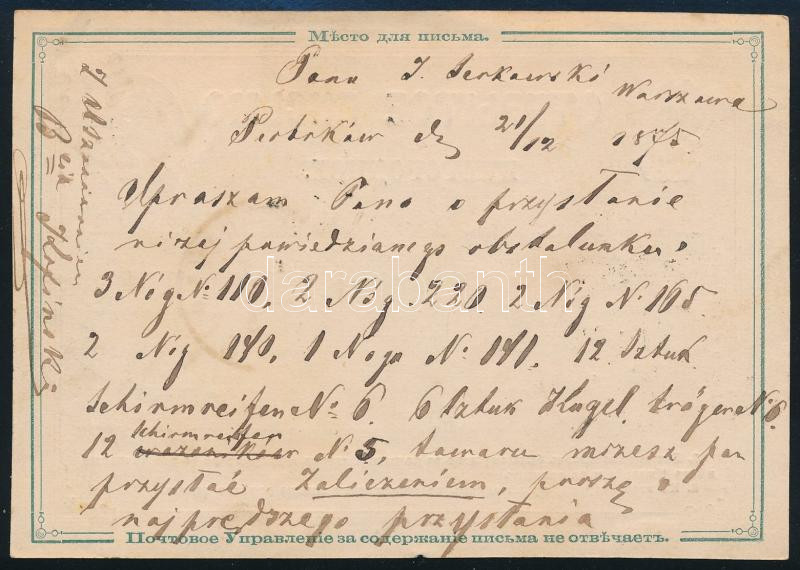 Мѣсто для письма.
Pana J. Serkowski
Warszawa
d 21/12 1875
Upraszam Pana o przysłanie
niżej powiedzianego obstalunku
3 Nog № 110, 2 Nóg 220 2 Nóg № 165.
2 Nóg 140, 1 Noga № 141, 12 Sztuk
Schirmreifen № 6. 6 Sztuk Kugel träger № 6.
12 Schirmreifen № 5, towaru możesz pan
przysłać Zaliczeniem, proszę o
najprędszego przysłania
Z Uszanowaniem
Почтовое Управленіе за содержаніе письма не отвѣчаетъ.
darabanth